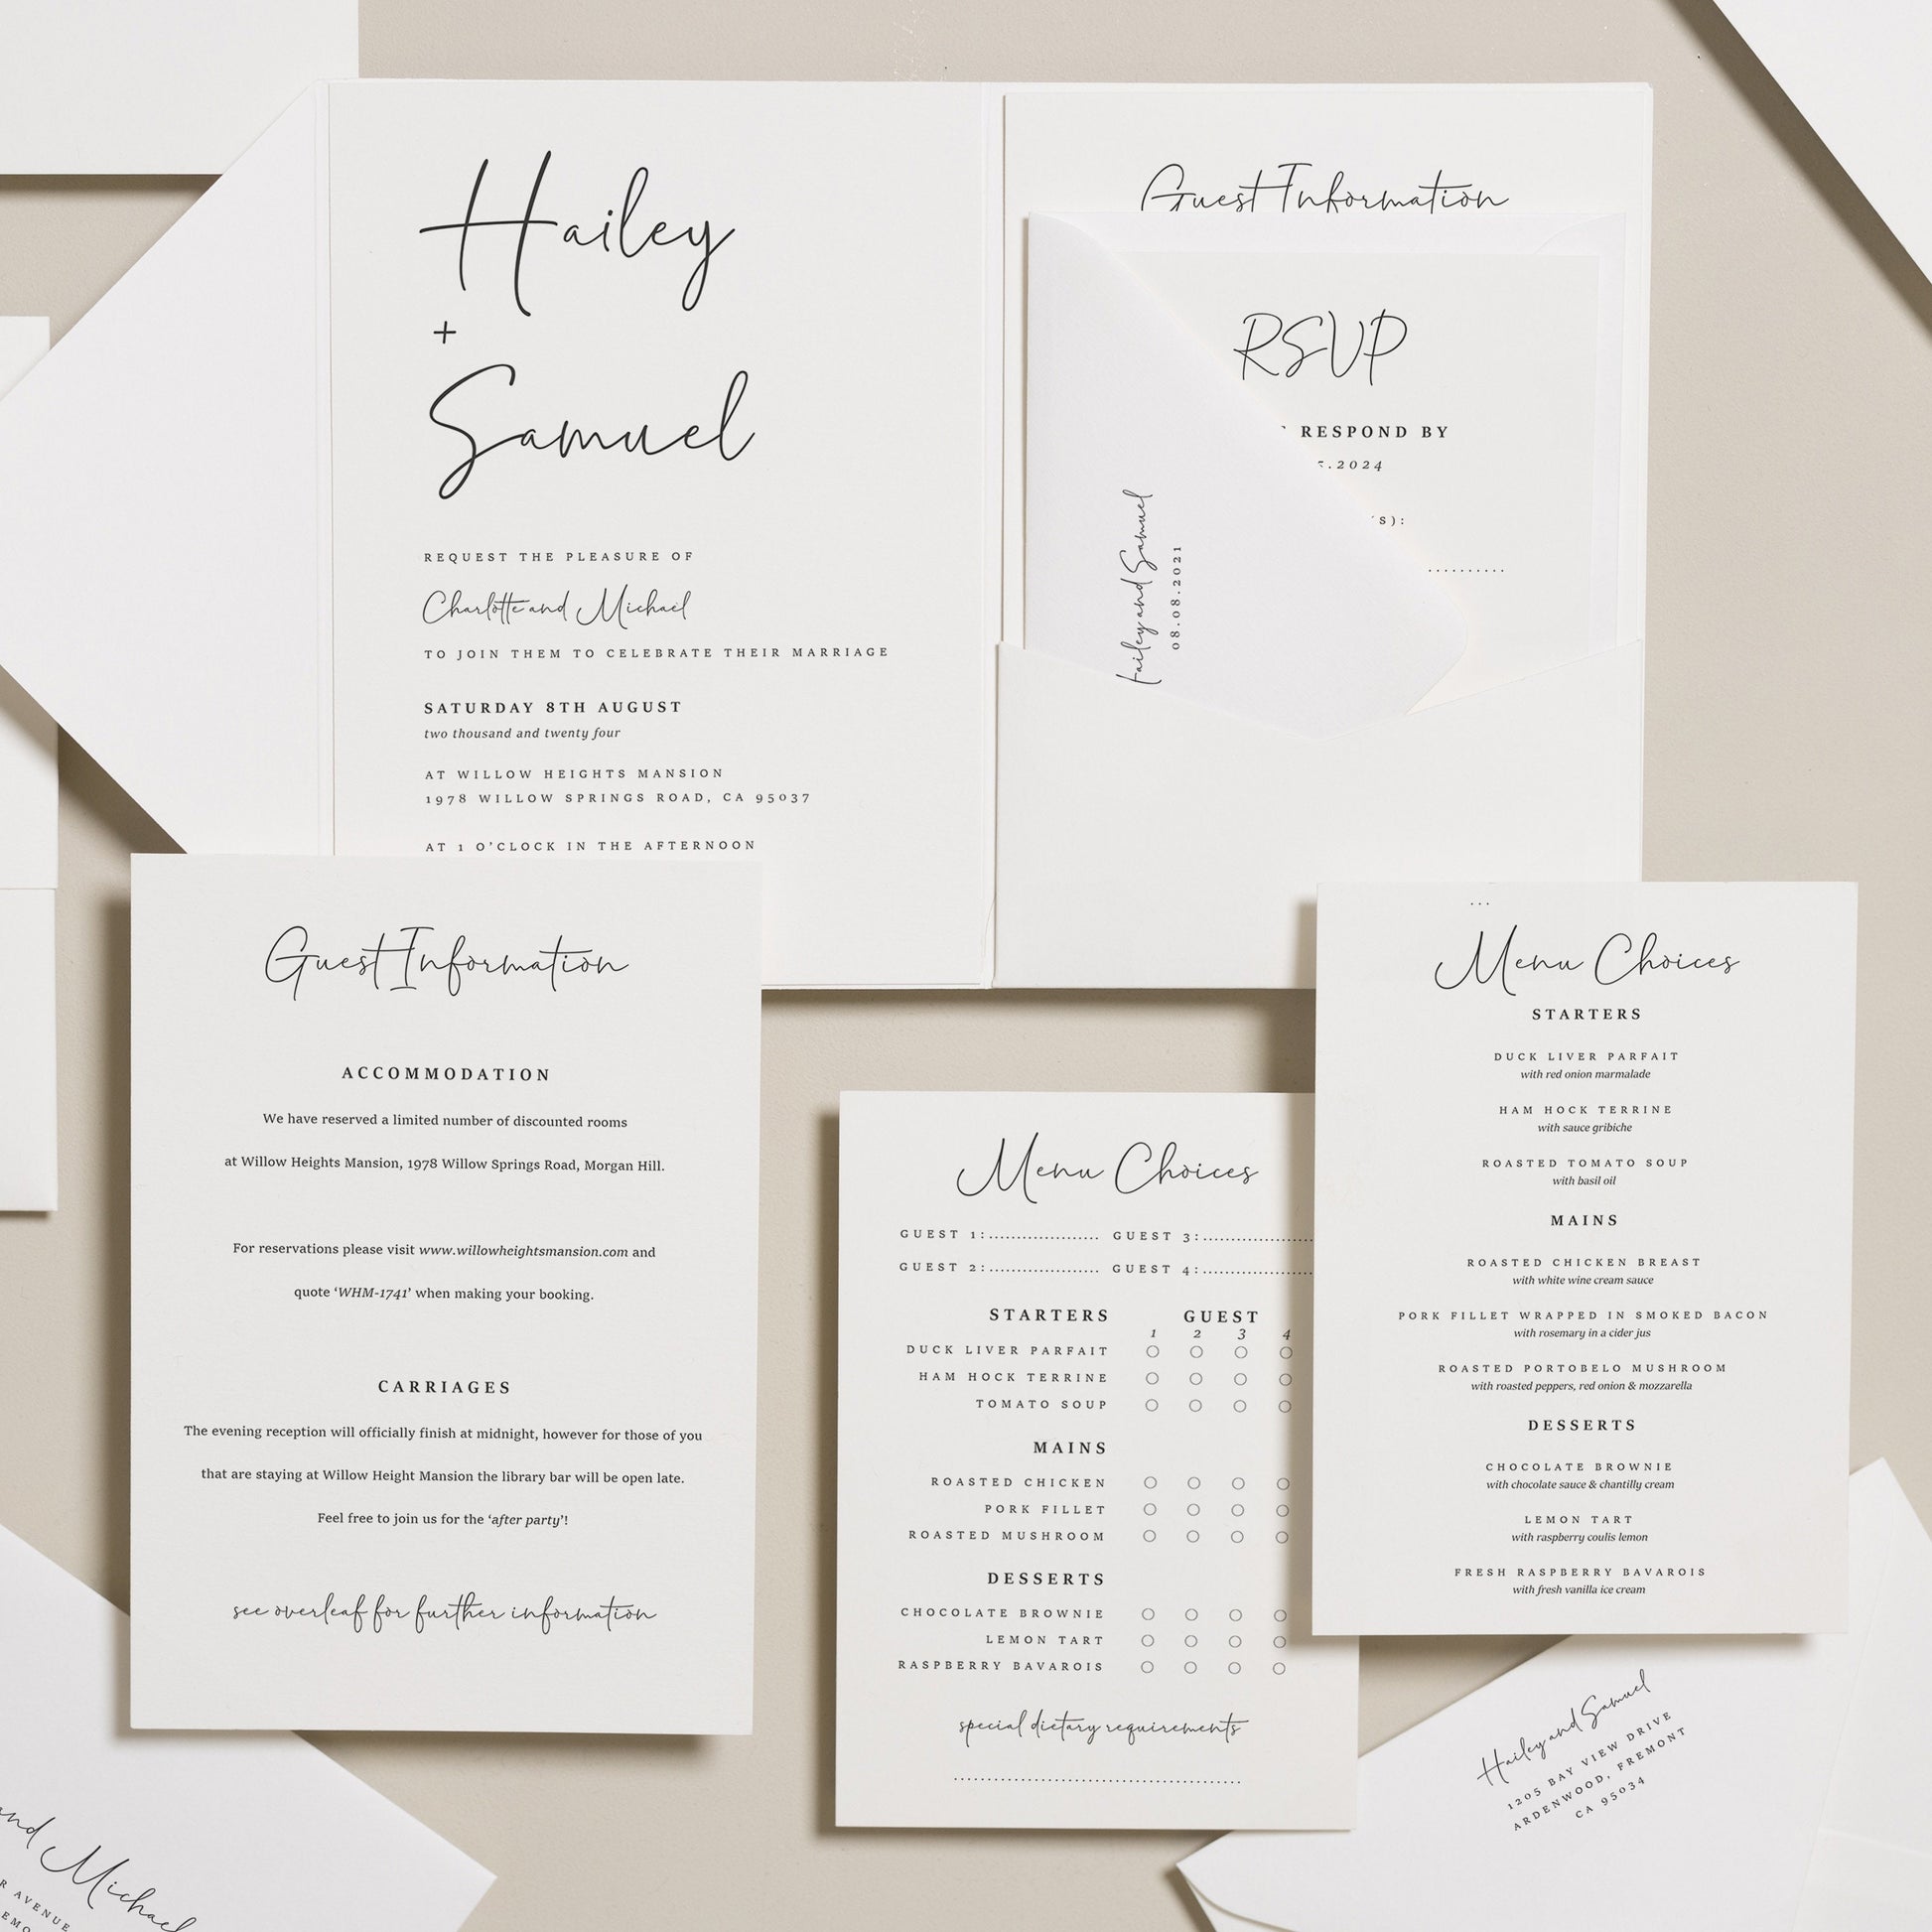 Hailey
+
Samuel
REQUEST THE PLEASURE OF
Charlotte and Michael
TO JOIN THEM TO CELEBRATE THEIR MARRIAGE
SATURDAY 8TH AUGUST
two thousand and twenty four
AT WILLOW HEIGHTS MANSION
1978 WILLOW SPRINGS ROAD, CA 95037
AT 1 O'CLOCK IN THE AFTERNOON
Guest Information
RSVP
RESPOND BY
.2024
s):
..........
Hailey and Samuel
08.08.2021
Guest Information
ACCOMMODATION
We have reserved a limited number of discounted rooms
at Willow Heights Mansion, 1978 Willow Springs Road, Morgan Hill.
For reservations please visit www.willowheightsmansion.com and
quote ‘WHM-1741’ when making your booking.
CARRIAGES
The evening reception will officially finish at midnight, however for those of you
that are staying at Willow Height Mansion the library bar will be open late.
Feel free to join us for the ‘after party’!
see overleaf for further information
Menu Choices
GUEST 1:.................... GUEST 3:....................
GUEST 2:.................... GUEST 4:....................
STARTERS GUEST
1 2 3 4
DUCK LIVER PARFAIT ○ ○ ○ ○
HAM HOCK TERRINE ○ ○ ○ ○
TOMATO SOUP ○ ○ ○ ○
MAINS
ROASTED CHICKEN ○ ○ ○ ○
PORK FILLET ○ ○ ○ ○
ROASTED MUSHROOM ○ ○ ○ ○
DESSERTS
CHOCOLATE BROWNIE ○ ○ ○ ○
LEMON TART ○ ○ ○ ○
RASPBERRY BAVAROIS ○ ○ ○ ○
special dietary requirements
..................................................
...
Menu Choices
STARTERS
DUCK LIVER PARFAIT
with red onion marmalade
HAM HOCK TERRINE
with sauce gribiche
ROASTED TOMATO SOUP
with basil oil
MAINS
ROASTED CHICKEN BREAST
with white wine cream sauce
PORK FILLET WRAPPED IN SMOKED BACON
with rosemary in a cider jus
ROASTED PORTOBELO MUSHROOM
with roasted peppers, red onion & mozzarella
DESSERTS
CHOCOLATE BROWNIE
with chocolate sauce & chantilly cream
LEMON TART
with raspberry coulis lemon
FRESH RASPBERRY BAVAROIS
with fresh vanilla ice cream
Hailey and Samuel
1205 BAY VIEW DRIVE
ARDENWOOD, FREMONT
CA 95034
and Michael
R AVENUE
EMO